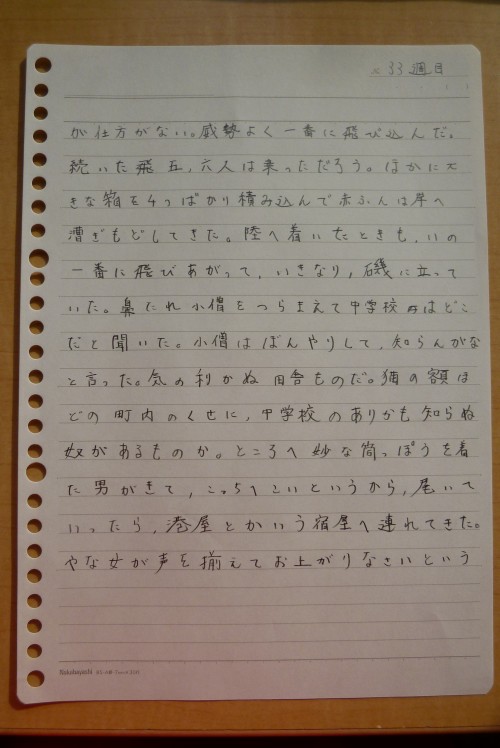 33週目
が仕方がない。威勢よく一番に飛び込んだ。
続いた飛五、六人は乗っただろう。ほかに大
きな箱を4つばかり積み込んで赤ふんは岸へ
漕ぎもどしてきた。陸へ着いたときも、いの
一番に飛びあがって、いきなり、磯に立って
いた。鼻たれ小僧をつらまえて中学校はどこ
だと聞いた。小僧はぼんやりして、知らんがな
と言った。気の利かぬ田舎ものだ。猫の額ほ
どの町内のくせに、中学校のありかも知らぬ
奴があるものか。ところへ妙な筒っぽうを着
た男がきて、こっちへこいというから、尾いて
いったら、港屋とかいう宿屋へ連れてきた。
やな女が声を揃えてお上がりなさいという
Nakabayashi